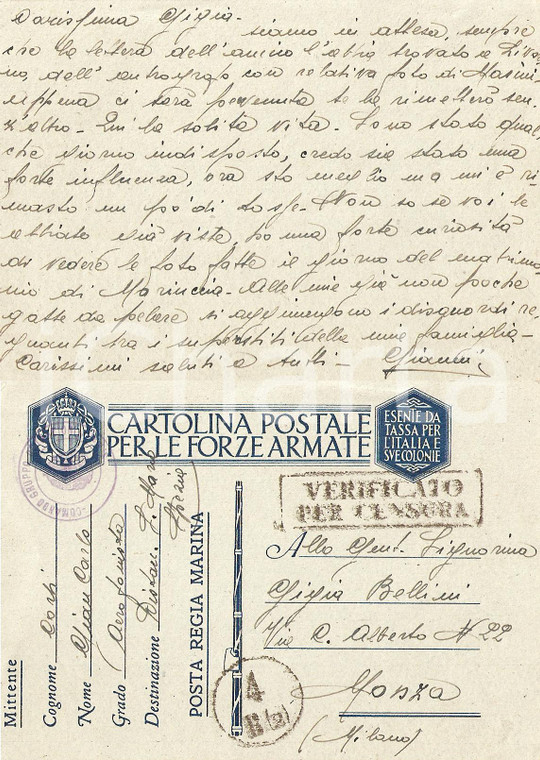 Carissima Gigia -
siamo in attesa, sempre
che la lettera dell'amico l'abbia trovato a Livor
no, dell' autografo con relativa foto di Masini,
appena ci sarà pervenuta te la rimetterò sen
z'altro - Qui la solita vita - Sono stato qual
che giorno indisposto, credo sia stato una
forte influenza, ora sto meglio ma mi è ri
masto un po' di tosse - Non so se voi le
abbiate già viste, ho una forte curiosità
di vedere le foto fatte il giorno del matrimo
nio di Mariuccia - Alle mie già non poche
gatte da pelare si aggiungono i disaccordi re
gnanti tra i superstiti della mia famiglia -
Carissimi saluti a tutti - Gianni
CARTOLINA POSTALE
PER LE FORZE ARMATE
ESENTE DA
TASSA PER
L'ITALIA E
SVE COLONIE
COMANDO GRUPPO
VERIFICATO
PER CENSURA
Mittente
Cognome
Nome Gian Carlo
Grado Aerofonista
Destinazione Distac. S. Mario
POSTA REGIA MARINA
4
B (2)
Alla Gent. Signorina
Gigia Bellini
Via C. Alberto N 22
Monza
(Milano)